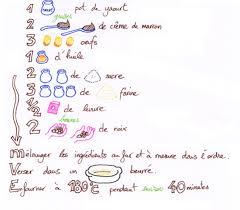 1 pot de yaourt
2 grosses de crème de marron
3 œufs
1 d'huile
2 de sucre
3 de farine
1/2 de levure
2 de noix
Mélanger les ingrédients au fur et à mesure dans l'ordre.
Verser dans un beurré.
Enfourner à 180°C pendant environ 40 minutes